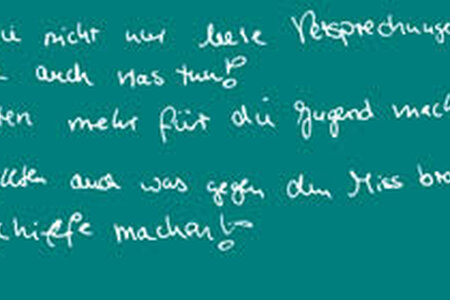 nicht nur leere Versprechunge
auch was tun!
ten mehr für die Jugend mach
llten auch was gegen den Miss bra
chiffe machen!